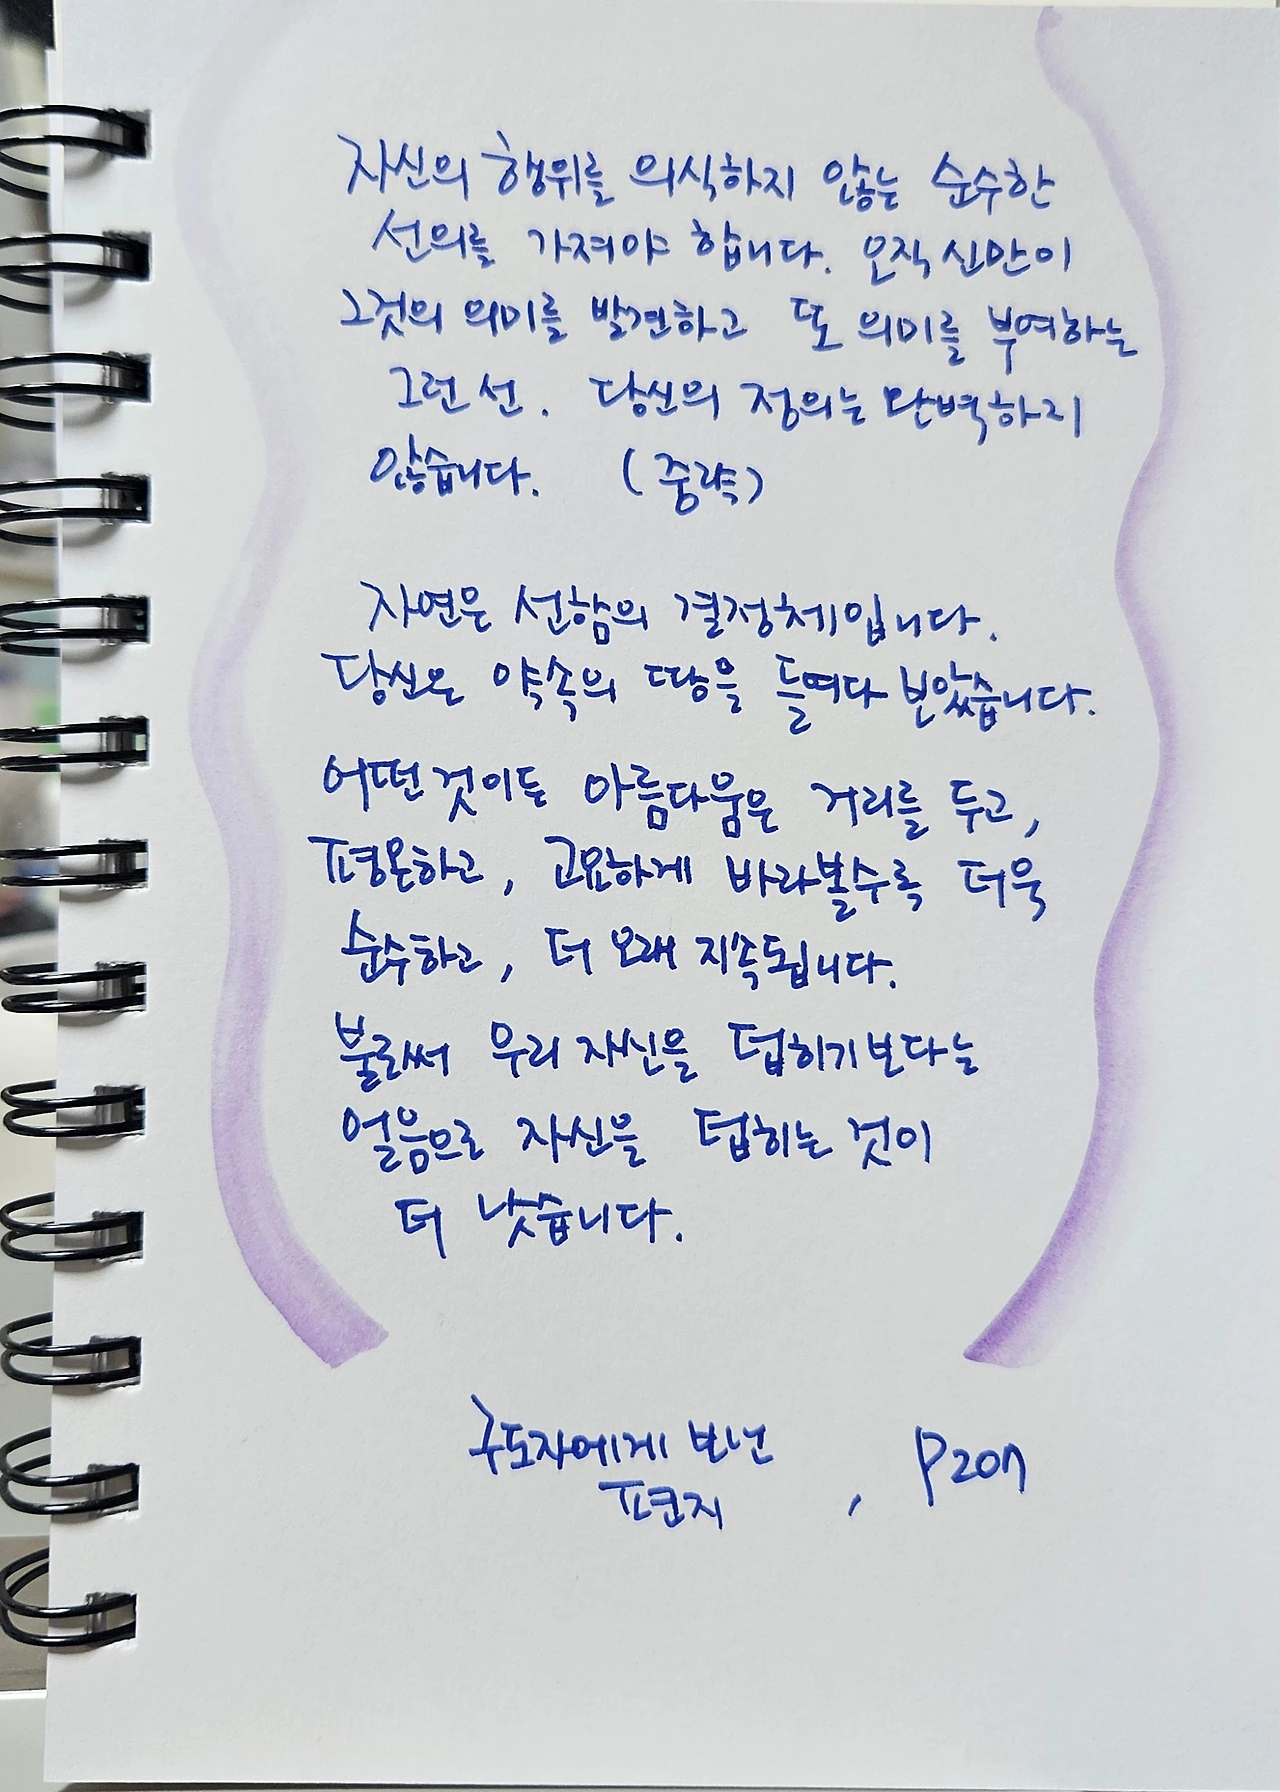 자신의 행위를 의식하지 않는 순수한
선의를 가져야 합니다. 오직 신만이
그것의 의미를 발견하고 또 의미를 부여하는
그런 선. 당신의 정의는 완벽하지
않습니다. (중략)
자연은 선함의 결정체입니다.
당신은 약속의 땅을 들여다 보았습니다.
어떤 것이든 아름다움은 거리를 두고,
평온하고, 고요하게 바라볼수록 더욱
순수하고, 더 오래 지속됩니다.
불로써 우리 자신을 덥히기보다는
얼음으로 자신을 덥히는 것이
더 낫습니다.
구도자에게 보낸
편지 , P207